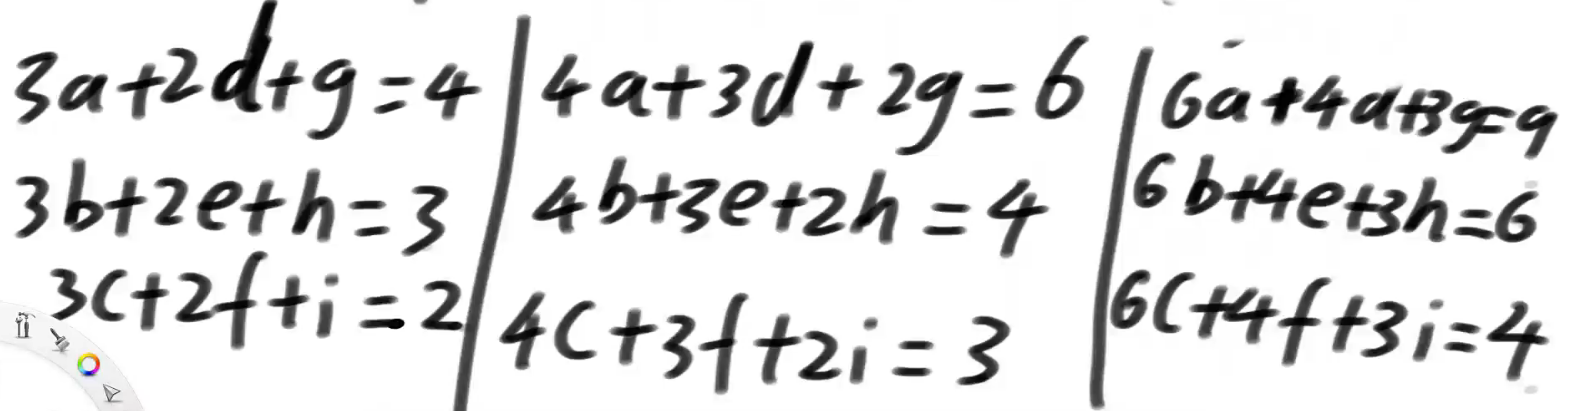 3a+2d+g=4
3b+2e+h=3
3c+2f+i=2
4a+3d+2g=6
4b+3e+2h=4
4c+3f+2i=3
6a+4d+3g=9
6b+4e+3h=6
6c+4f+3i=4